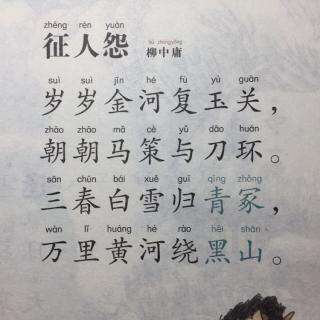 zhēng rén yuàn
征人怨
liǔ zhōngyōng
柳中庸
suì suì jīn hé fù yù guān
岁岁金河复玉关，
zhāo zhāo mǎ cè yǔ dāo huán
朝朝马策与刀环。
sān chūn bái xuě guī qīng zhǒng
三春白雪归青冢，
wàn lǐ huáng hé rào hēi shān
万里黄河绕黑山。